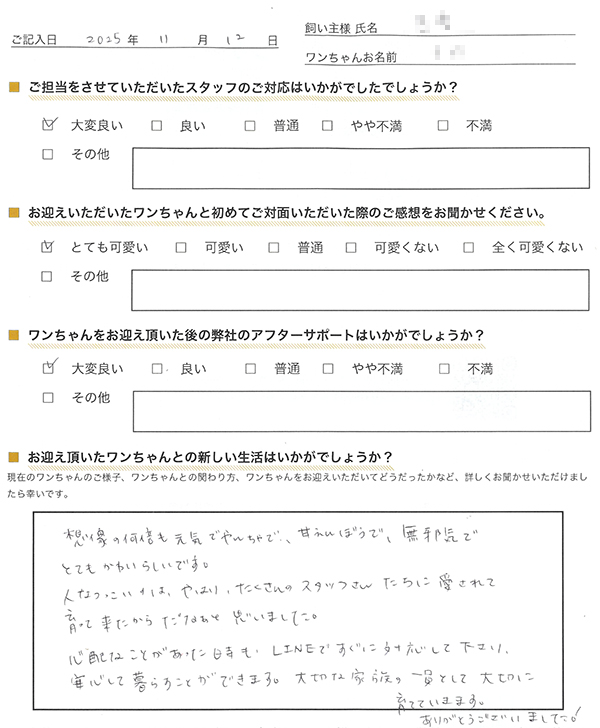 ご記入日 2025年 11 月 12 日
飼い主様 氏名
ワンちゃんお名前
■ ご担当をさせていただいたスタッフのご対応はいかがでしたでしょうか？
☑ 大変良い □ 良い □ 普通 □ やや不満 □ 不満
□ その他
■ お迎えいただいたワンちゃんと初めてご対面いただいた際のご感想をお聞かせください。
☑ とても可愛い □ 可愛い □ 普通 □ 可愛くない □ 全く可愛くない
□ その他
■ ワンちゃんをお迎え頂いた後の弊社のアフターサポートはいかがでしょうか？
☑ 大変良い □ 良い □ 普通 □ やや不満 □ 不満
□ その他
■ お迎え頂いたワンちゃんとの新しい生活はいかがでしょうか？
現在のワンちゃんのご様子、ワンちゃんとの関わり方、ワンちゃんをお迎えいただいてどうだったかなど、詳しくお聞かせいただけまし
たら幸いです。
想像の何倍も元気でやんちゃで、甘えんぼうで、無邪気で
とてもかわいらしいです。
人なつっこいのは、やはり、たくさんのスタッフさんたちに愛されて
育って来たからだなぁと思いました。
心配なことがあった時も、LINEですぐに対応して下さり、
安心して暮らすことができます。大切な家族の一員として大切に
育てていきます。
ありがとうございました！